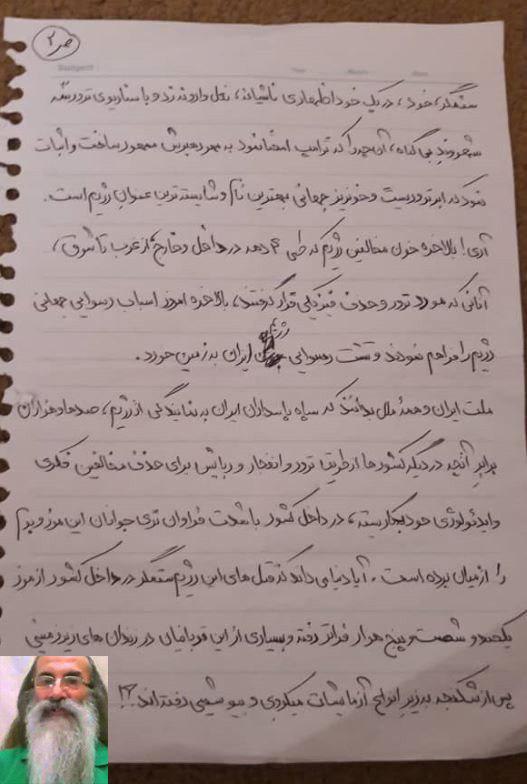 ص ۲
Subject
ستمگر، خود، در یک خود اظهاری ناشیانه، نعل وارونه زد و با سناریوی ترور سه
شهروند بی گناه، آنچه را که ترامپ امضا نمود به مهر رهبرش ممهور ساخت و اثبات
نمود که ابر تروریست و خونریز جهانی بهترین نام و شایسته ترین عنوان رژیم است.
آری! بالاخره خون مخالفین رژیم که طی ۴ دهه در داخل و خارج، از غرب تا شرق،
آنانی که مورد ترور و حذف فیزیکی قرار گرفتند، بالاخره امروز اسباب رسوایی جهانی
رژیم را فراهم نمودند و تشت رسوایی رژیم ایران به زمین خورد.
ملت ایران و همهٔ ملل بدانند که سپاه پاسداران ایران به نمایندگی از رژیم، صدها و هزاران
برابر آنچه در دیگر کشورها از طریق ترور و انفجار و ربایش برای حذف مخالفین فکری
و ایدئولوژی خود بکار بسته، در داخل کشور با شدت فراوان تری جوانان این مرز و بوم
را از میان برده است. آیا دنیا می داند که قتل های این رژیم ستمگر در داخل کشور از مرز
یکصد و شصت و پنج هزار فراتر رفته و بسیاری از این قربانیان در زندان های زیرزمینی
پس از شکنجه به زیر انواع آزمایشات میکروبی و بیوشیمی رفته اند؟!